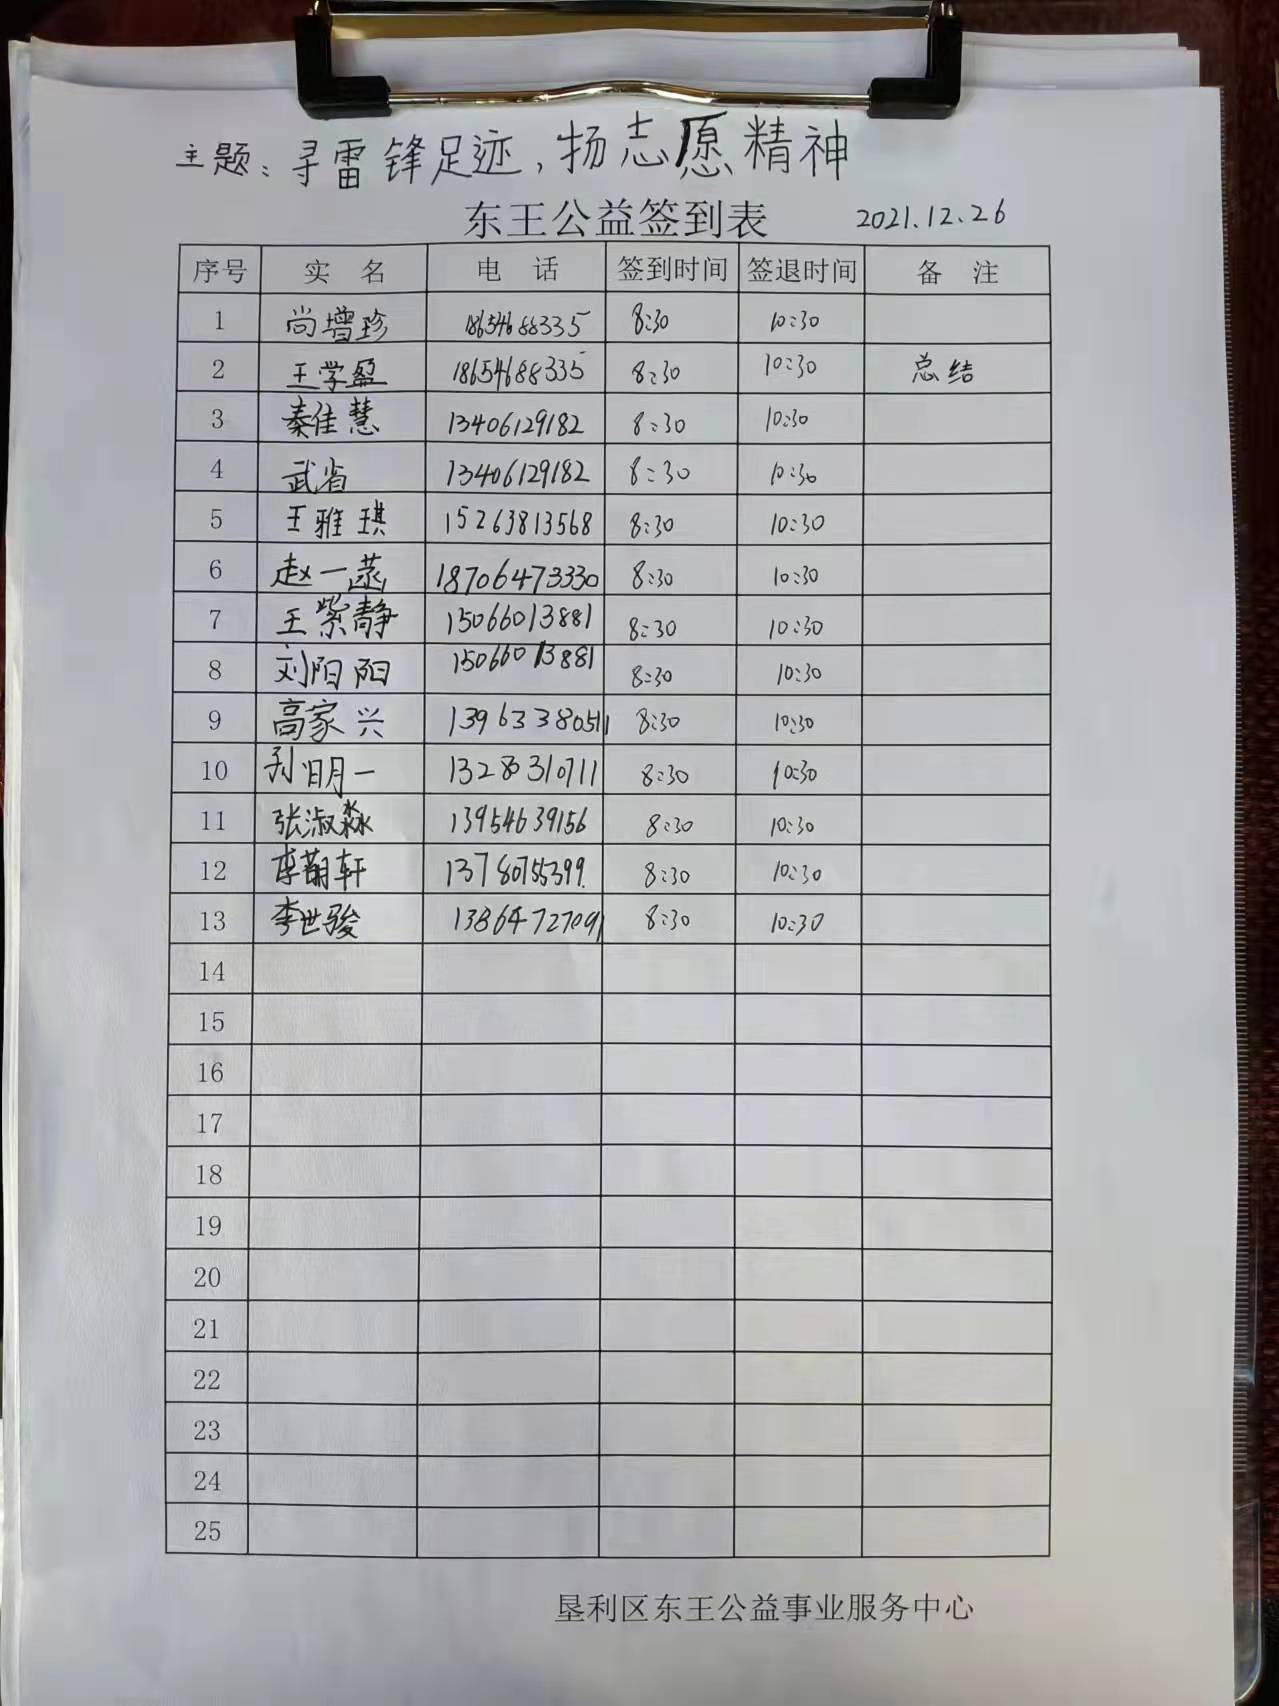 主题：寻雷锋足迹，扬志愿精神
东王公益签到表 2021.12.26
序号 实名 电话 签到时间 签退时间 备注
1 尚增珍 18654688335 8:30 10:30
2 王学盈 18654688335 8:30 10:30 总结
3 秦佳慧 13406129182 8:30 10:30
4 武省 13406129182 8:30 10:30
5 王雅琪 15263813568 8:30 10:30
6 赵一菡 18706473330 8:30 10:30
7 王紫静 15066013881 8:30 10:30
8 刘阳阳 15066013881 8:30 10:30
9 高家兴 13963380511 8:30 10:30
10 孙明一 13280310711 8:30 10:30
11 张淑淼 13954639156 8:30 10:30
12 李萌轩 13780755399 8:30 10:30
13 李世骏 13864727091 8:30 10:30
14
15
16
17
18
19
20
21
22
23
24
25
垦利区东王公益事业服务中心